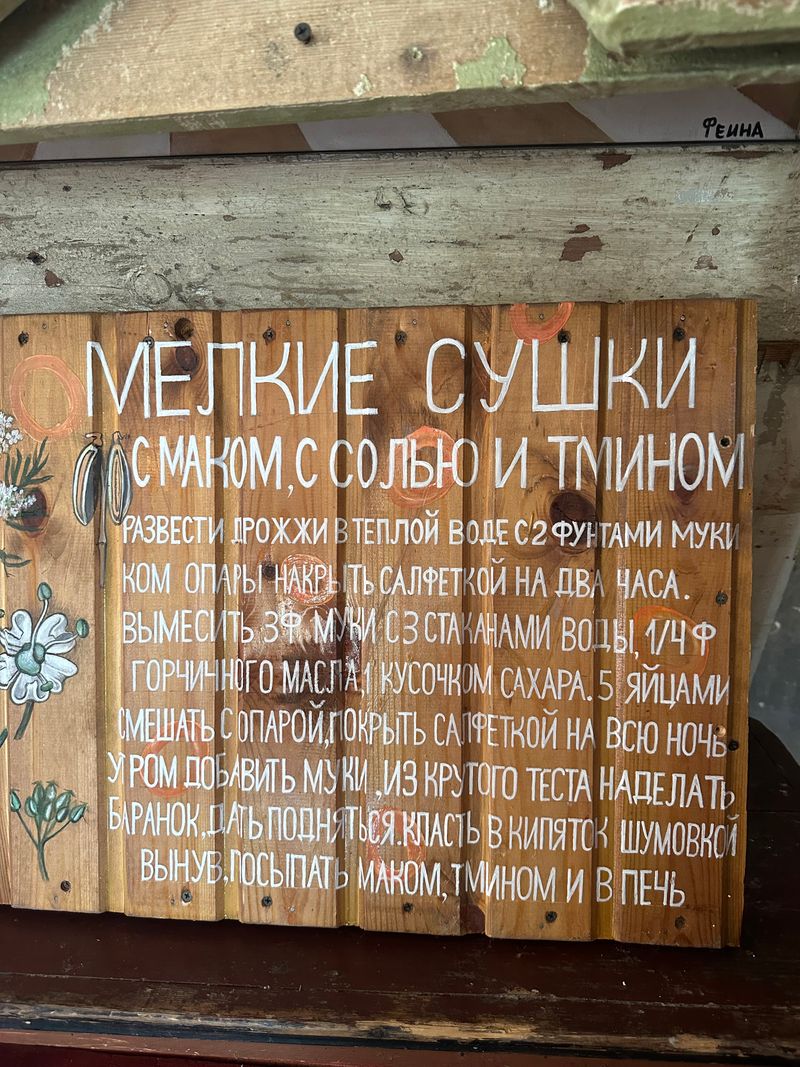 Феина
МЕЛКИЕ СУШКИ
С МАКОМ, С СОЛЬЮ И ТМИНОМ
РАЗВЕСТИ ДРОЖЖИ В ТЕПЛОЙ ВОДЕ С 2 ФУНТАМИ МУКИ
КОМ ОПАРЫ НАКРЫТЬ САЛФЕТКОЙ НА ДВА ЧАСА.
ВЫМЕСИТЬ 3Ф МУКИ С 3 СТАКАНАМИ ВОДЫ, 1/4 Ф
ГОРЧИЧНОГО МАСЛА 1 КУСОЧКОМ САХАРА. 5 ЯЙЦАМИ
СМЕШАТЬ С ОПАРОЙ, ПОКРЫТЬ САЛФЕТКОЙ НА ВСЮ НОЧЬ
УТРОМ ДОБАВИТЬ МУКИ, ИЗ КРУТОГО ТЕСТА НАДЕЛАТЬ
БАРАНОК, ДАТЬ ПОДНЯТЬСЯ. КЛАСТЬ В КИПЯТОК ШУМОВКОЙ
ВЫНУВ, ПОСЫПАТЬ МАКОМ, ТМИНОМ И В ПЕЧЬ